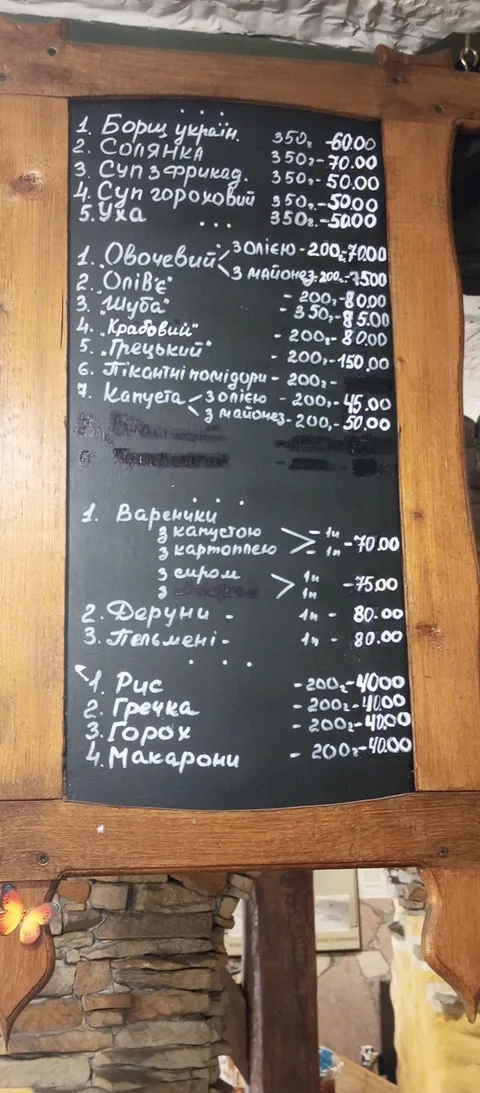 ...
1. Борщ україн. 350г -60.00
2. Солянка 350г-70.00
3. Суп з фрикад. 350г-50.00
4. Суп гороховий 350г-50.00
5. Уха 350г-50.00
...
1. „Овочевий" з олією-200г-70.00
з майонез-200г-75.00
2. „Олів'є" - 200г-80.00
3. "Шуба" - 350г-85.00
4. „Крабовий" - 200г-80.00
5. „Грецький" - 200г-150.00
6. Пікантні помідори - 200г-
7. Капуста з олією - 200г-45.00
з майонез-200г-50.00
...
1. Вареники
з капустою - 1п
з картоплею - 1п -70.00
з сиром 1п
з 1п -75.00
2. Деруни - 1п - 80.00
3. Пельмені - 1п - 80.00
...
1. Рис -200г-40.00
2. Гречка -200г-40.00
3. Горох - 200г-40.00
4. Макарони - 200г-40.00